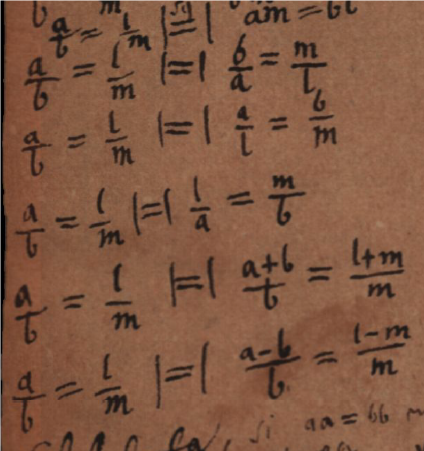 a/b = l/m |=| am = bl
a/b = l/m |=| b/a = m/l
a/b = l/m |=| a/l = b/m
a/b = l/m |=| l/a = m/b
a/b = l/m |=| a+b/b = l+m/m
a/b = l/m |=| a-b/b = l-m/m
si aa = bb